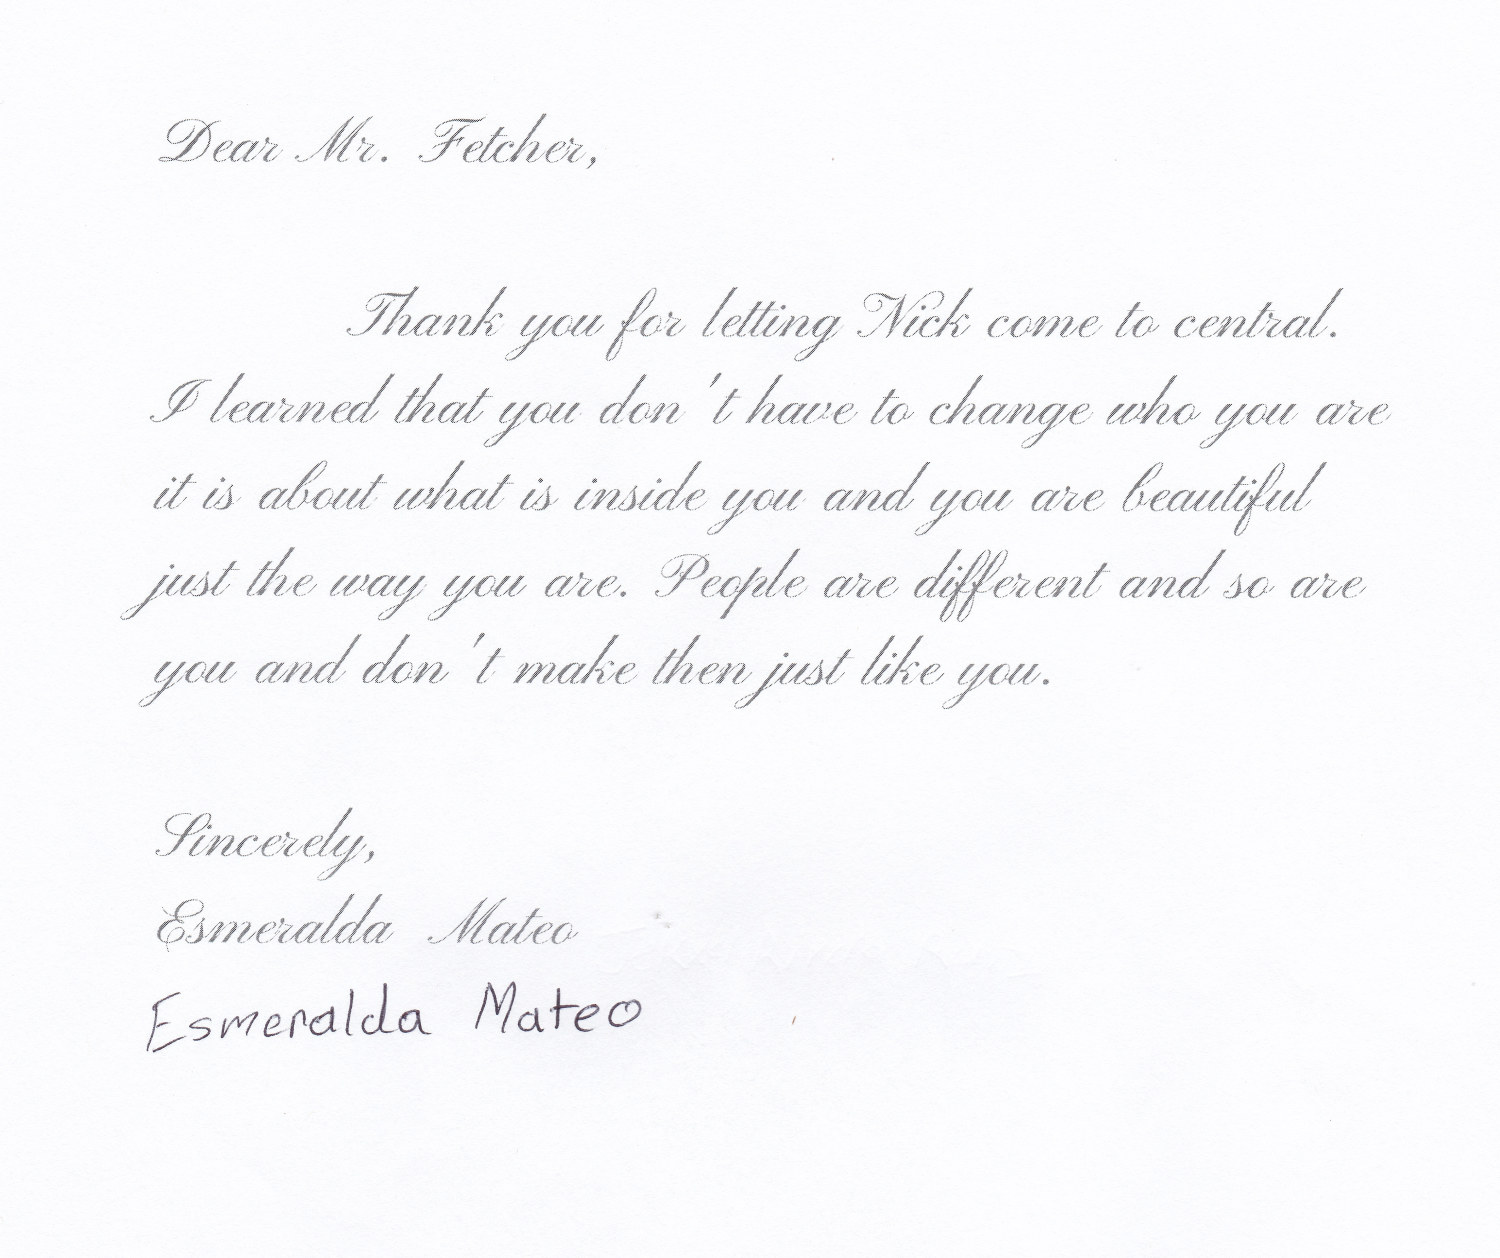 Dear Mr. Fetcher,
Thank you for letting Nick come to central.
I learned that you don't have to change who you are
it is about what is inside you and you are beautiful
just the way you are. People are different and so are
you and don't make then just like you.
Sincerely,
Esmeralda Mateo
Esmeralda Mateo